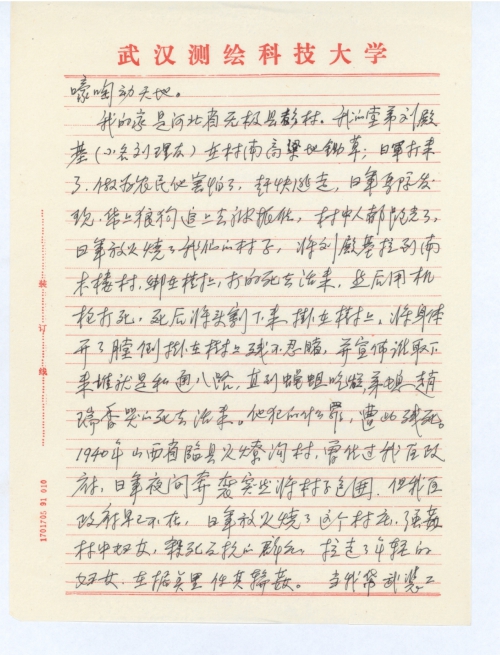 武汉测绘科技大学
嚎啕动天地。
我的家是河北省无极县彭村。我的堂弟刘殿
基(小名刘理友)在村南高梁地锄草;日军打来
了,做为农民他害怕了,赶快逃走,日军马队发
现,带上狼狗追上去被抓住,村中人都跑光了,
日军放火烧了我们的村子,将刘殿基拉到南
木楼村,绑在树上,打的死去活来,然后用机
枪打死,死后将头割下来,掛在树上,将身体
开了膛倒掛在树上残不忍睹,并宣佈谁取下
来谁就是私通八路,直到蝇蛆吃烂,弟媳赵
瑞香哭的死去活来。他犯的什么罪,遭此残死。
1940年山西省临县义燎沟村,曾住过我区政
府,日军夜间奔袭突然将村子包围,但我区
政府早已不在,日军放火烧了这个村庄,强姦
村中妇女,杀死反抗的群众,拉走了年轻的
妇女,在据点里任其轮姦。当我带武装工
装订线
1701705 91 010